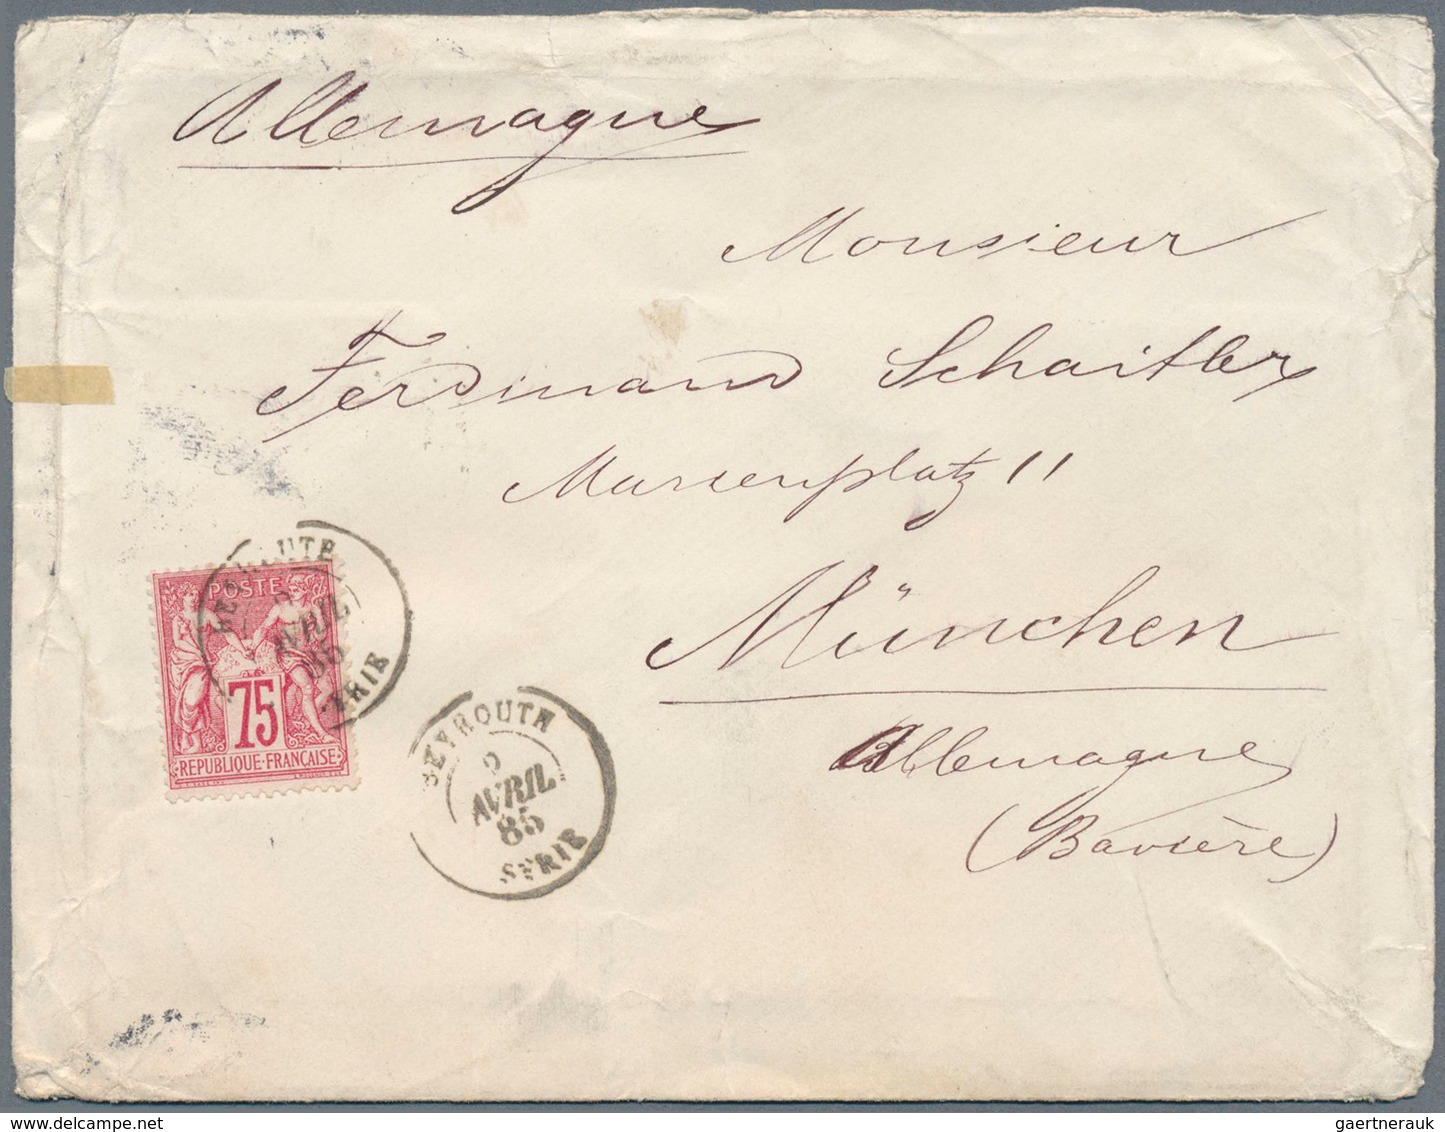 Allemagne
Monsieur
Ferdinand Schaitler
Marienplatz 11
München
Allemagne
(Bavière)
POSTE
75
REPUBLIQUE FRANÇAISE
AVRIL
85
BEYROUTH
AVRIL
85
SYRIE
delcampe.net
gaertnerauk